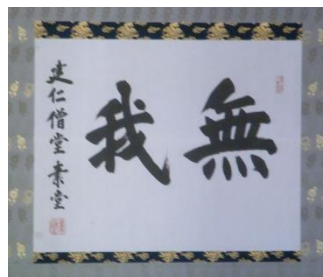 無我
建仁僧堂 素堂